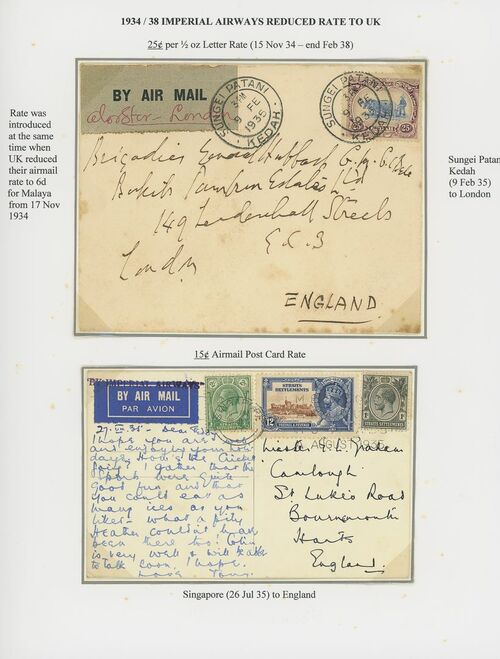 1934 / 38 IMPERIAL AIRWAYS REDUCED RATE TO UK
25¢ per ½ oz Letter Rate (15 Nov 34 – end Feb 38)
Rate was
introduced
at the same
time when
UK reduced
their airmail
rate to 6d
for Malaya
from 17 Nov
1934
BY AIR MAIL
London
SUNGEI PATANI
9 FE
1935
KEDAH
SUNGEI PATANI
KEDAH
25
Estates Ltd
149 Leadenhall Streets
E.C.3
London
ENGLAND
Sungei Patan
Kedah
(9 Feb 35)
to London
15¢ Airmail Post Card Rate
BY IMPERIAL AIRWAYS
BY AIR MAIL
PAR AVION
STRAITS
SETTLEMENTS
12
STRAITS SETTLEMENTS
AUGUST 1935
I hope you are
and enjoying your holi
days. How is the
Party? I gather that the
sports were quite
good fun and that
you could eat as
many ices as you
liked - what a pity
Heather couldn't have
been there too!
is very well & will
to talk soon, I hope.
St Luke's Road
Bournemouth
Hants
England
Singapore (26 Jul 35) to England